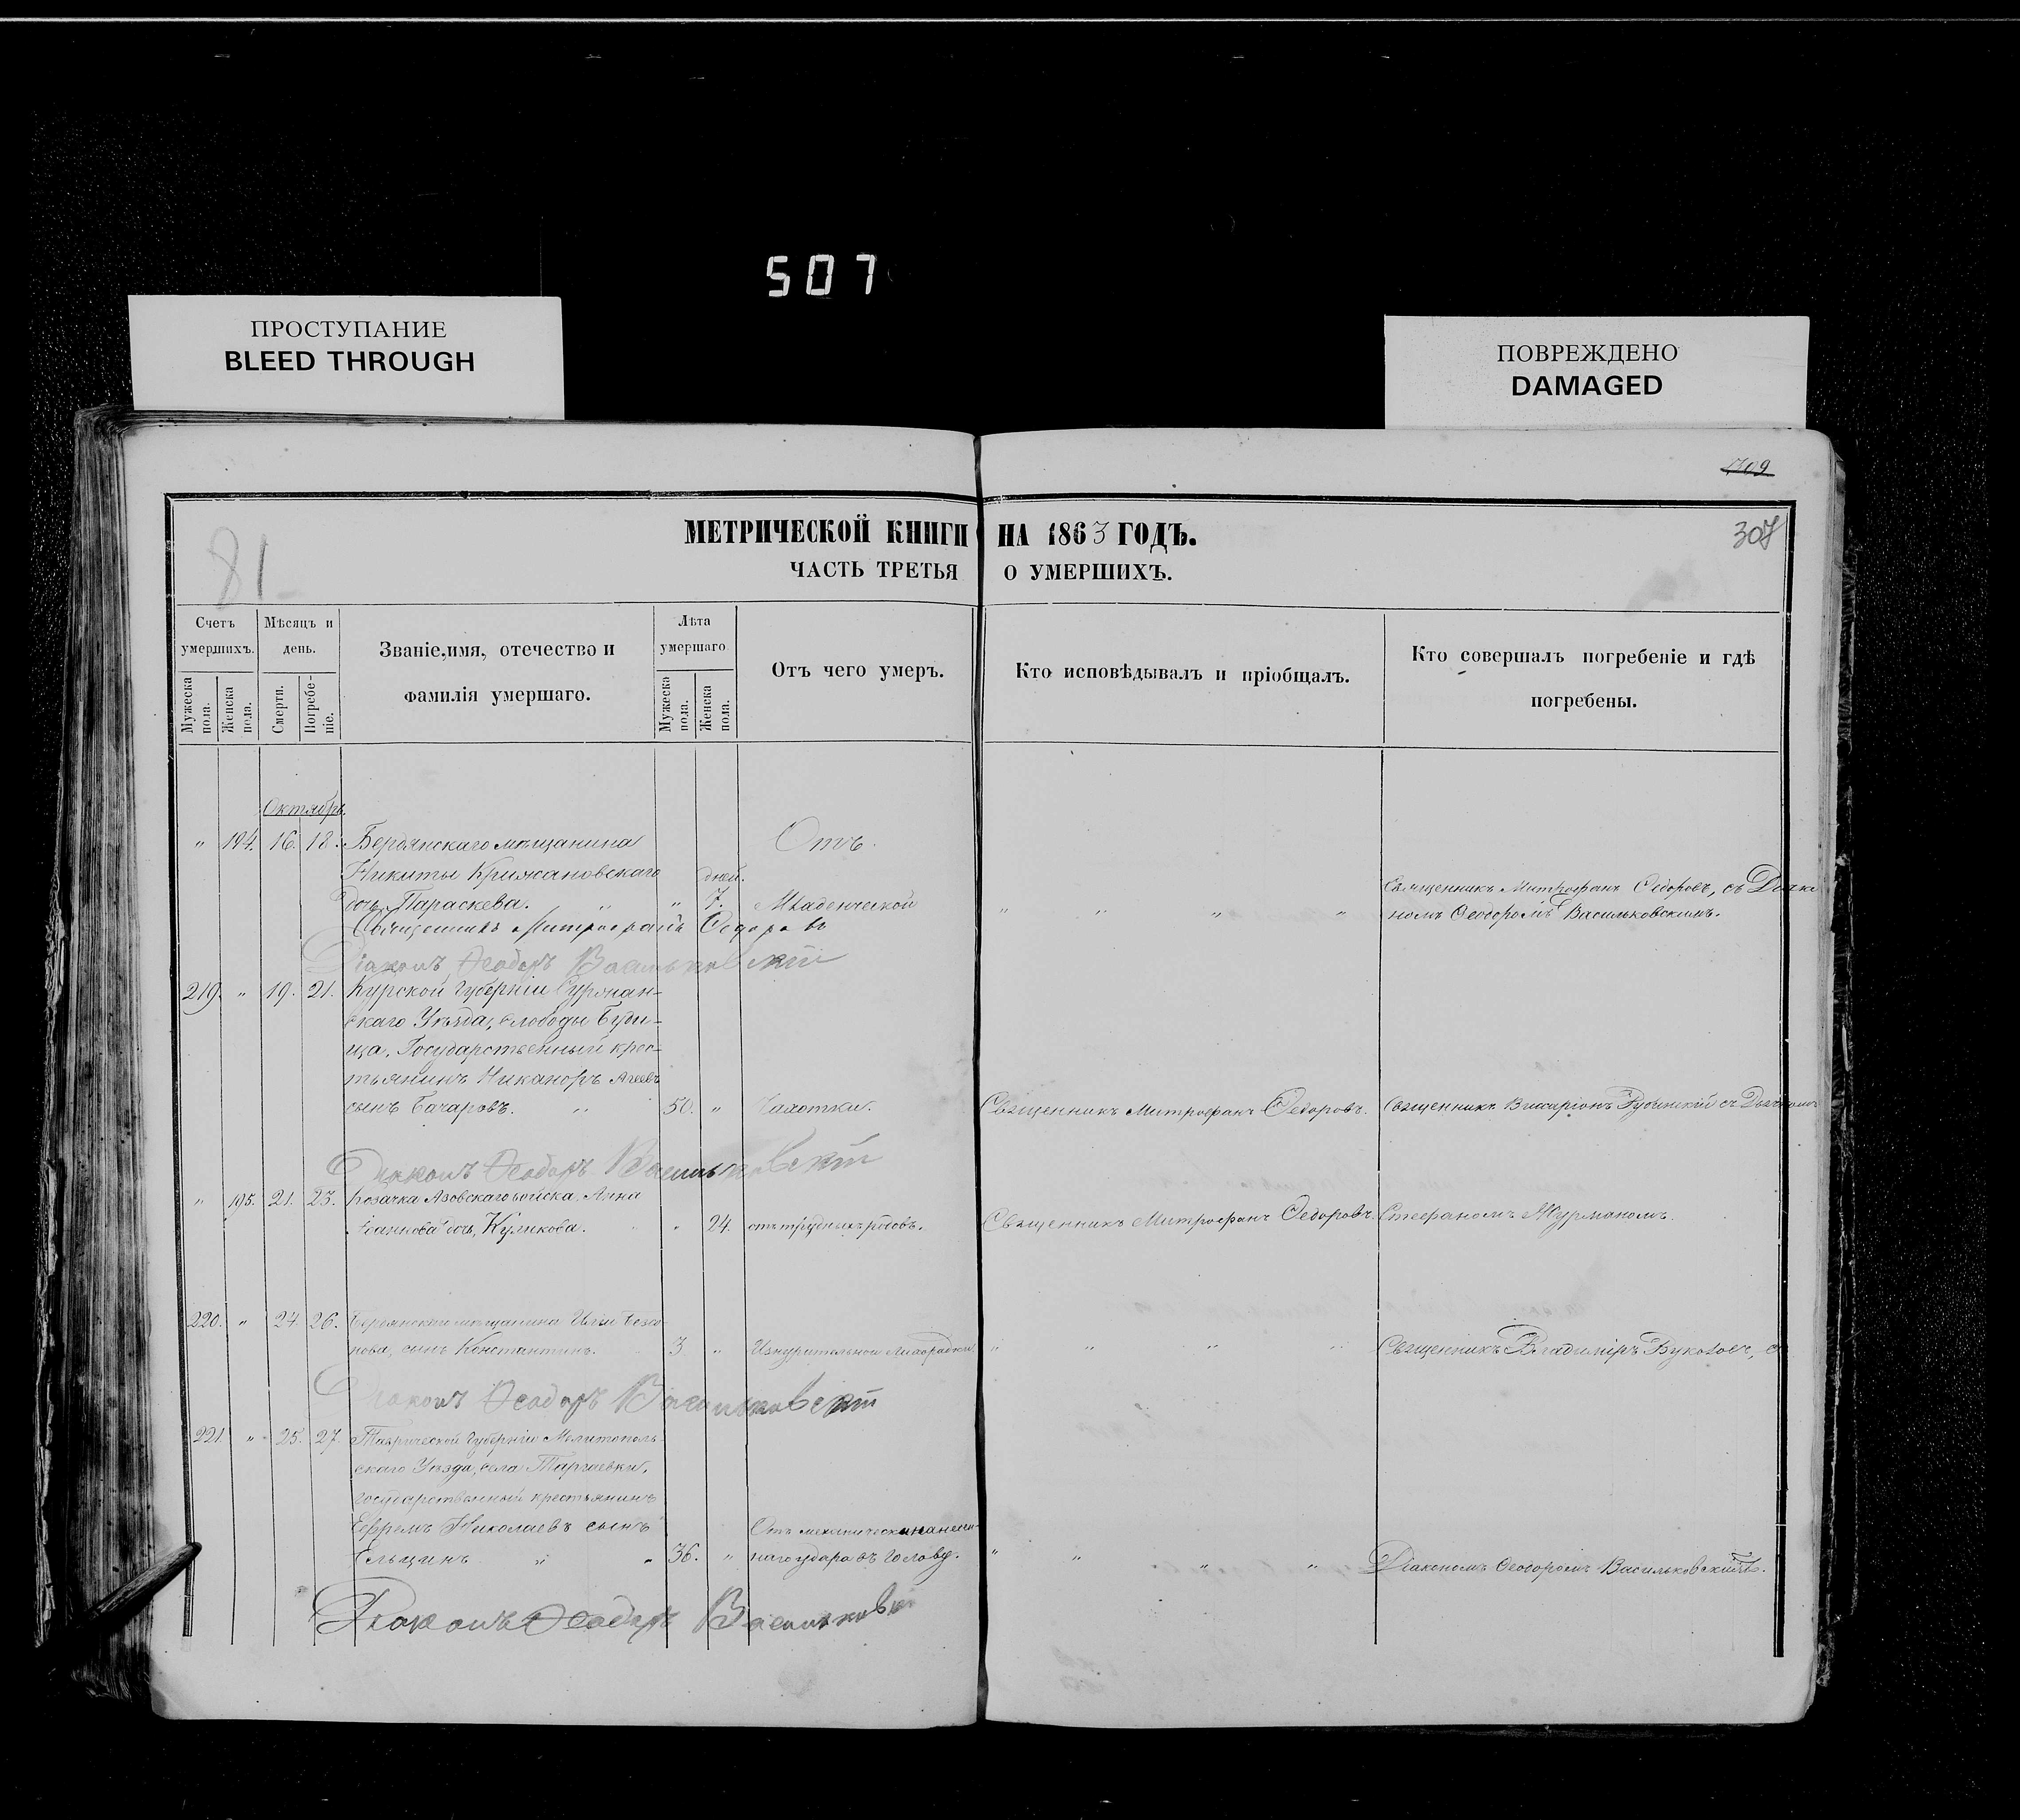 507
ПРОСТУПАНИЕ
BLEED THROUGH
ПОВРЕЖДЕНО
DAMAGED
709
307
81
МЕТРИЧЕСКОЙ КНИГИ НА 1863 ГОДЪ.
ЧАСТЬ ТРЕТЬЯ О УМЕРШИХЪ.
Счетъ умершихъ.
Мужеска пола.
Женска пола.
Мѣсяцъ и день.
Смерти.
Погребеніе.
Званіе, имя, отечество и
фамилія умершаго.
Лѣта умершаго
Мужеска пола.
Женска пола.
Отъ чего умеръ.
Кто исповѣдывалъ и пріобщалъ.
Кто совершалъ погребеніе и гдѣ
погребены.
Октябрь
" 194. 16. 18. Бердянскаго мѣщанина Отъ
Никиты Крижановскаго дней.
дочь Параскева. " " 7. Младенческой " " " "
Священникъ Митрофанъ Ѳедоровъ, съ Діако
номъ Ѳеодоромъ Васильковскимъ.
Священникъ Митрофанъ Ѳедоровъ
Діаконъ Ѳеодоръ Васильковскій
219. " 19. 21. Курской Губерніи
скаго Уѣзда, слободы
ща, Государственный крес-
тьянинъ Никаноръ Агеевъ
сынъ Бачаровъ. " 50. " Чахотки. Священникъ Митрофанъ Ѳедоровъ. Священникъ Виссаріонъ съ
Діаконъ Ѳеодоръ Васильковскій
" 195. 21. 23. Козачка Азовскаго войска, Анна
Іоаннова дочь, Куликова. " 24. отъ трудныхъ родовъ. Священникъ Митрофанъ Ѳедоровъ. Стефаномъ Журманомъ.
220. " 24. 26. Бердянскаго мѣщанина
нова, сынъ Константинъ. 3 " Изнурительной лихорадки. " " " " Священникъ Владиміръ Буковъ, съ
Діаконъ Ѳеодоръ Васильковскій
221. " 25. 27. Таврической Губерніи Мелитополь-
скаго Уѣзда, села
государственный крестьянинъ
Ефремъ Николаевъ сынъ Отъ механически нанесен-
Ельцинъ " " 36. " наго удара въ голову. " " " " Діакономъ Ѳеодоромъ Васильковскимъ.
Діаконъ Ѳеодоръ Васильковскі